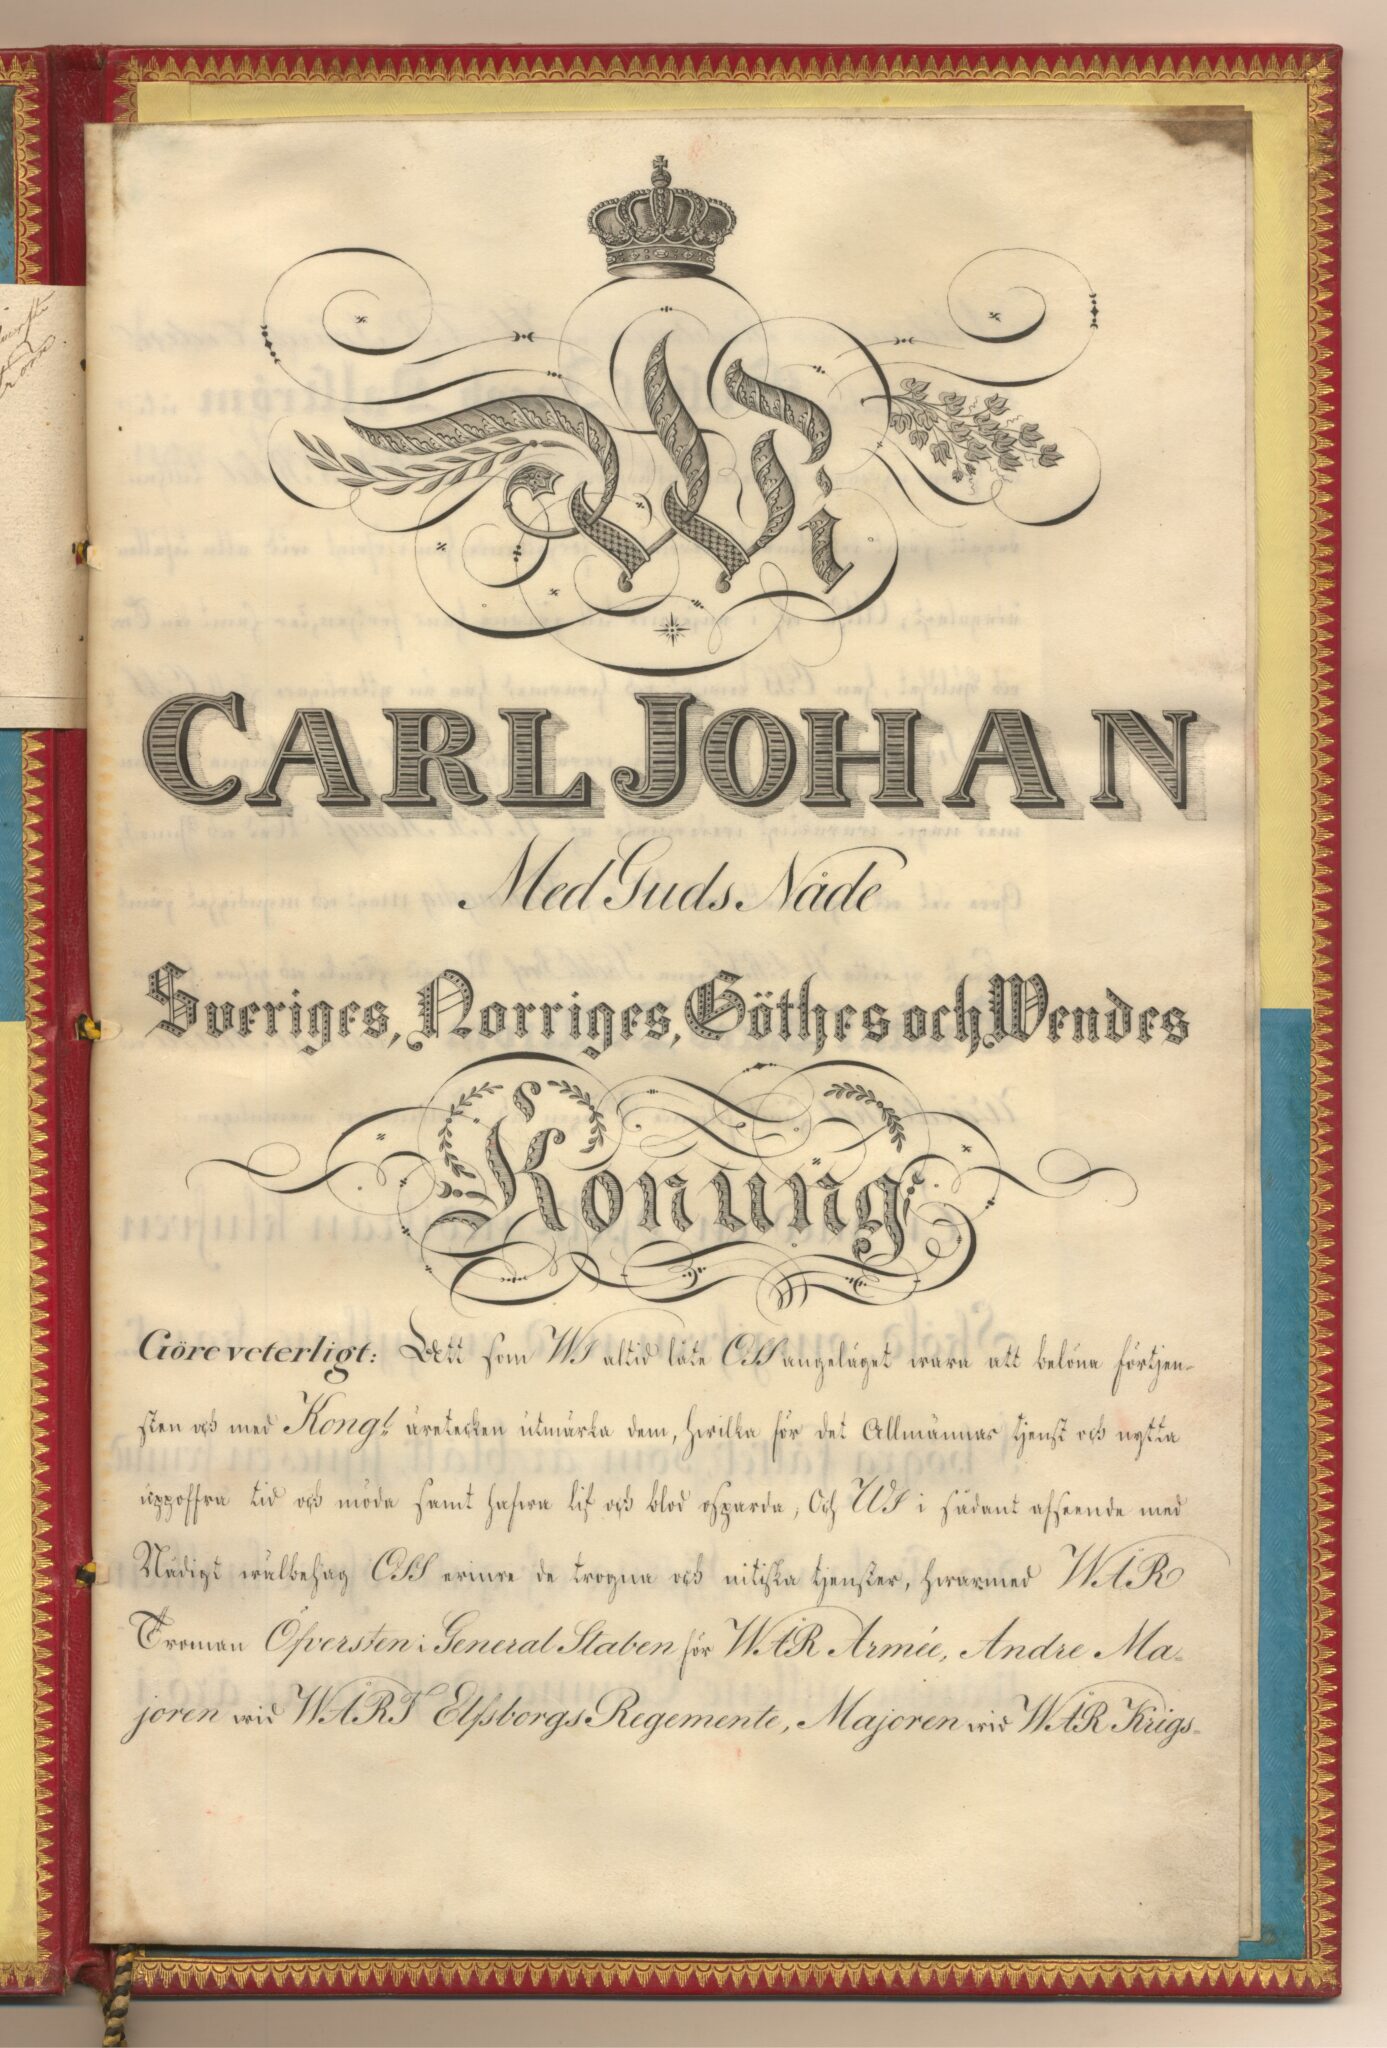 Wi
CARL JOHAN
Med Guds Nåde
Sveriges, Norriges, Göthes och Wendes
Konung
Göre veterligt: Att som WI altid låte OSS angeläget wara att belöna förtjen-
sten och med Kongl. äretecken utmärka dem, hwilka för det Allmännas tjenst och nytta
uppoffra tid och möda samt hafwa lif och blod ospard a, Och WI i sådant afseende med
Nådigt wälbehag OSS erinre de trogna och nitiska tjenster, hwarmed WÅR
Troman Öfversten i General Staben för WÅR Armée, Andre Ma-
joren wid WÅRT Elfsborgs Regemente, Majoren wid WÅR Krigs-